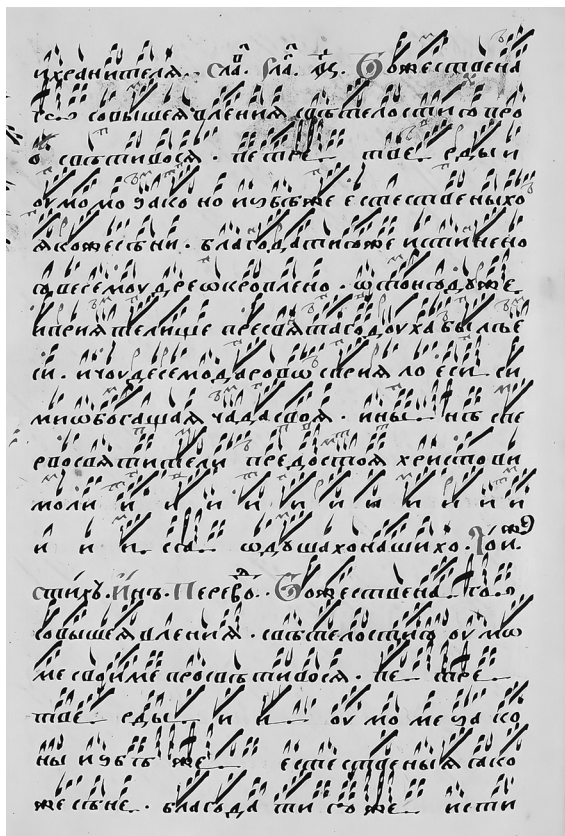 ихранителѧ. сла. гла. ѕ҃. Божествена
гоѡ совышеѧвлениѧ свѣтелостию про
о свѣтивосѧ. петре тве рды и
оумомо ꙗко но изꙋбѣже естественыхо
ꙗкожесѣни. благодатигоже истинено
товесемоудреѡкроплено. ѡтонюдꙋже
иприѧтелище пресвѧтагодоуха бысть е
си. ичоудесемодаровѡ сприꙗ ло еси си
миѡбогащаꙗ чадасвоꙗ. ины нѣ пе
рвосвѧтители предостоѧ христови
моли и и и и и и и и и
и и и сѧ ѡдꙋшахонашихо. Той
стихъ. Инъ. Перево. Божествена гоѡ
совышеѧвлениѧ. свѣтелостию оумо
месвоиме просвѣтивосѧ. пе тре
тве рды и и оу мо ме ꙗ ко
ны избѣ же естественыѧ ꙗко
же сѣне. благода ти го же исти